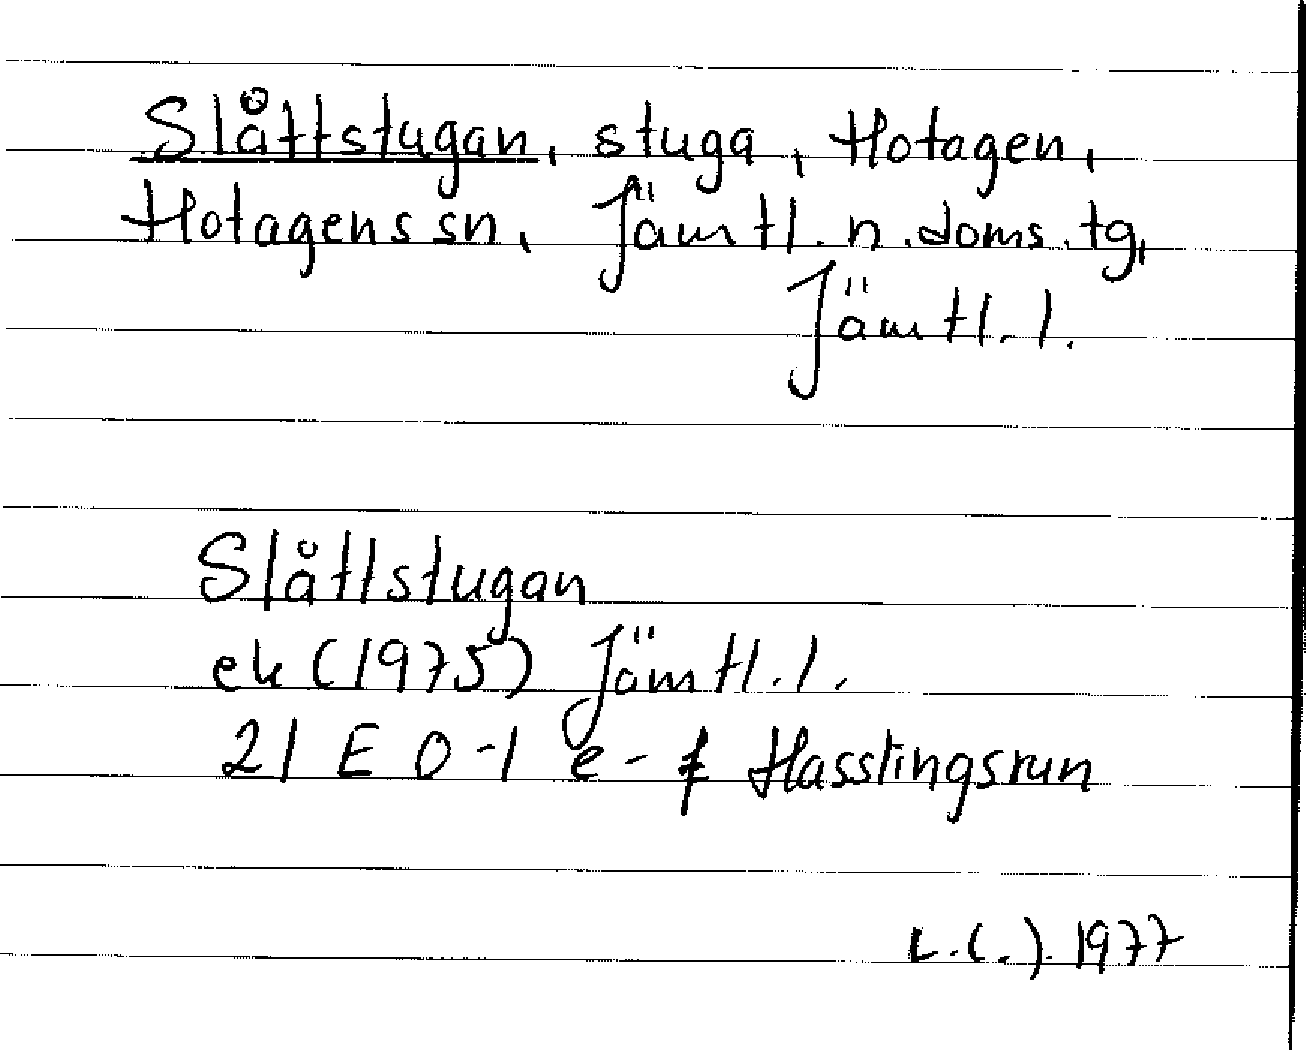 Slåttstugan, stuga, Hotagen,
Hotagens sn, Jämtl. n. doms. tg,
Jämtl. l.
Slåttstugan
ek (1975) Jämtl. l.
21 E 0-1 e-f Hasslingsrun
1977